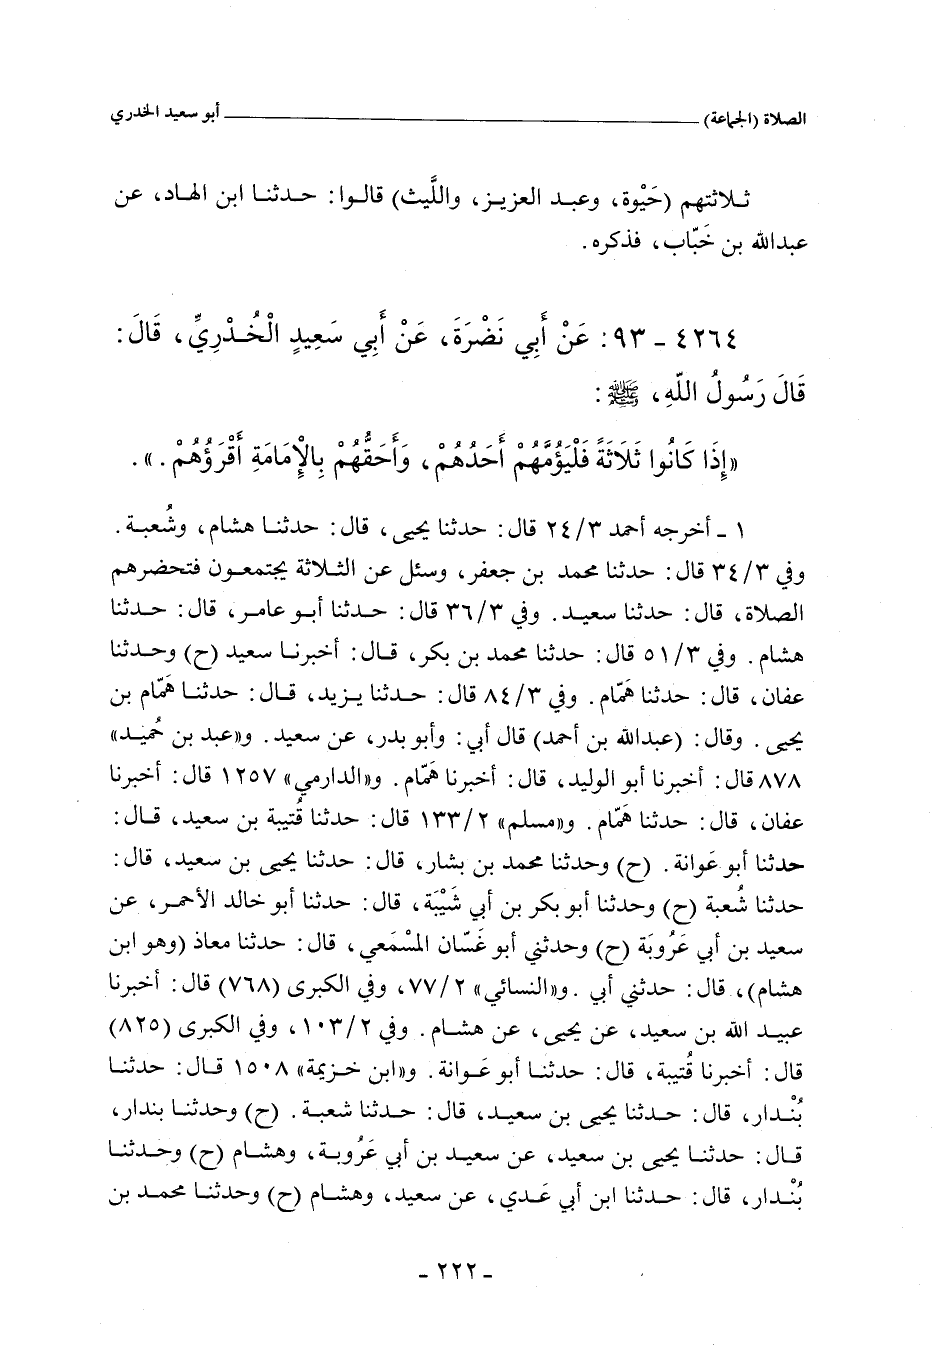 الصلاة (الجماعة) ــــــــــ أبو سعيد الخدري
ثلاثتهم (حَيْوة، وعبد العزيز، واللَّيث) قالوا: حدثنا ابن الهاد، عن
عبدالله بن خَبّاب، فذكره.
٤٢٦٤ - ٩٣: عَنْ أَبِي نَضْرَةَ، عَنْ أَبِي سَعِيدٍ الْخُدْرِيِّ، قَالَ:
قَالَ رَسُولُ اللّهِ، ﷺ:
«إِذَا كَانُوا ثَلَاثَةً فَلْيَؤُمَّهُمْ أَحَدُهُمْ، وَأَحَقُّهُمْ بِالْإِمَامَةِ أَقْرَؤُهُمْ.».
١ - أخرجه أحمد ٢٤/٣ قال: حدثنا يحيى، قال: حدثنا هشام، وشُعبة.
وفي ٣٤/٣ قال: حدثنا محمد بن جعفر، وسئل عن الثلاثة يجتمعون فتحضرهم
الصلاة، قال: حدثنا سعيد. وفي ٣٦/٣ قال: حدثنا أبو عامر، قال: حدثنا
هشام. وفي ٥١/٣ قال: حدثنا محمد بن بكر، قال: أخبرنا سعيد (ح) وحدثنا
عفان، قال: حدثنا همّام. وفي ٨٤/٣ قال: حدثنا يزيد، قال: حدثنا همّام بن
يحيى. وقال: (عبدالله بن أحمد) قال أبي: وأبو بدر، عن سعيد. و«عبد بن حُميد»
٨٧٨ قال: أخبرنا أبو الوليد، قال: أخبرنا همّام. و«الدارمي» ١٢٥٧ قال: أخبرنا
عفان، قال: حدثنا همّام. و«مسلم» ١٣٣/٢ قال: حدثنا قُتيبة بن سعيد، قال:
حدثنا أبو عَوانة. (ح) وحدثنا محمد بن بشار، قال: حدثنا يحيى بن سعيد، قال:
حدثنا شُعبة (ح) وحدثنا أبو بكر بن أبي شَيْبَة، قال: حدثنا أبو خالد الأحمر، عن
سعيد بن أبي عَرُوبَة (ح) وحدثني أبو غَسّان المسْمَعي، قال: حدثنا معاذ (وهو ابن
هشام)، قال: حدثني أبي. و«النسائي» ٧٧/٢، وفي الكبرى (٧٦٨) قال: أخبرنا
عبيد الله بن سعيد، عن يحيى، عن هشام. وفي ١٠٣/٢، وفي الكبرى (٨٢٥)
قال: أخبرنا قُتيبة، قال: حدثنا أبو عَوانة. و«ابن خزيمة» ١٥٠٨ قال: حدثنا
بُنْدار، قال: حدثنا يحيى بن سعيد، قال: حدثنا شعبة. (ح) وحدثنا بندار،
قال: حدثنا يحيى بن سعيد، عن سعيد بن أبي عَرُوبة، وهشام (ح) وحدثنا
بُنْدار، قال: حدثنا ابن أبي عَدي، عن سعيد، وهشام (ح) وحدثنا محمد بن
- ٢٢٢ -